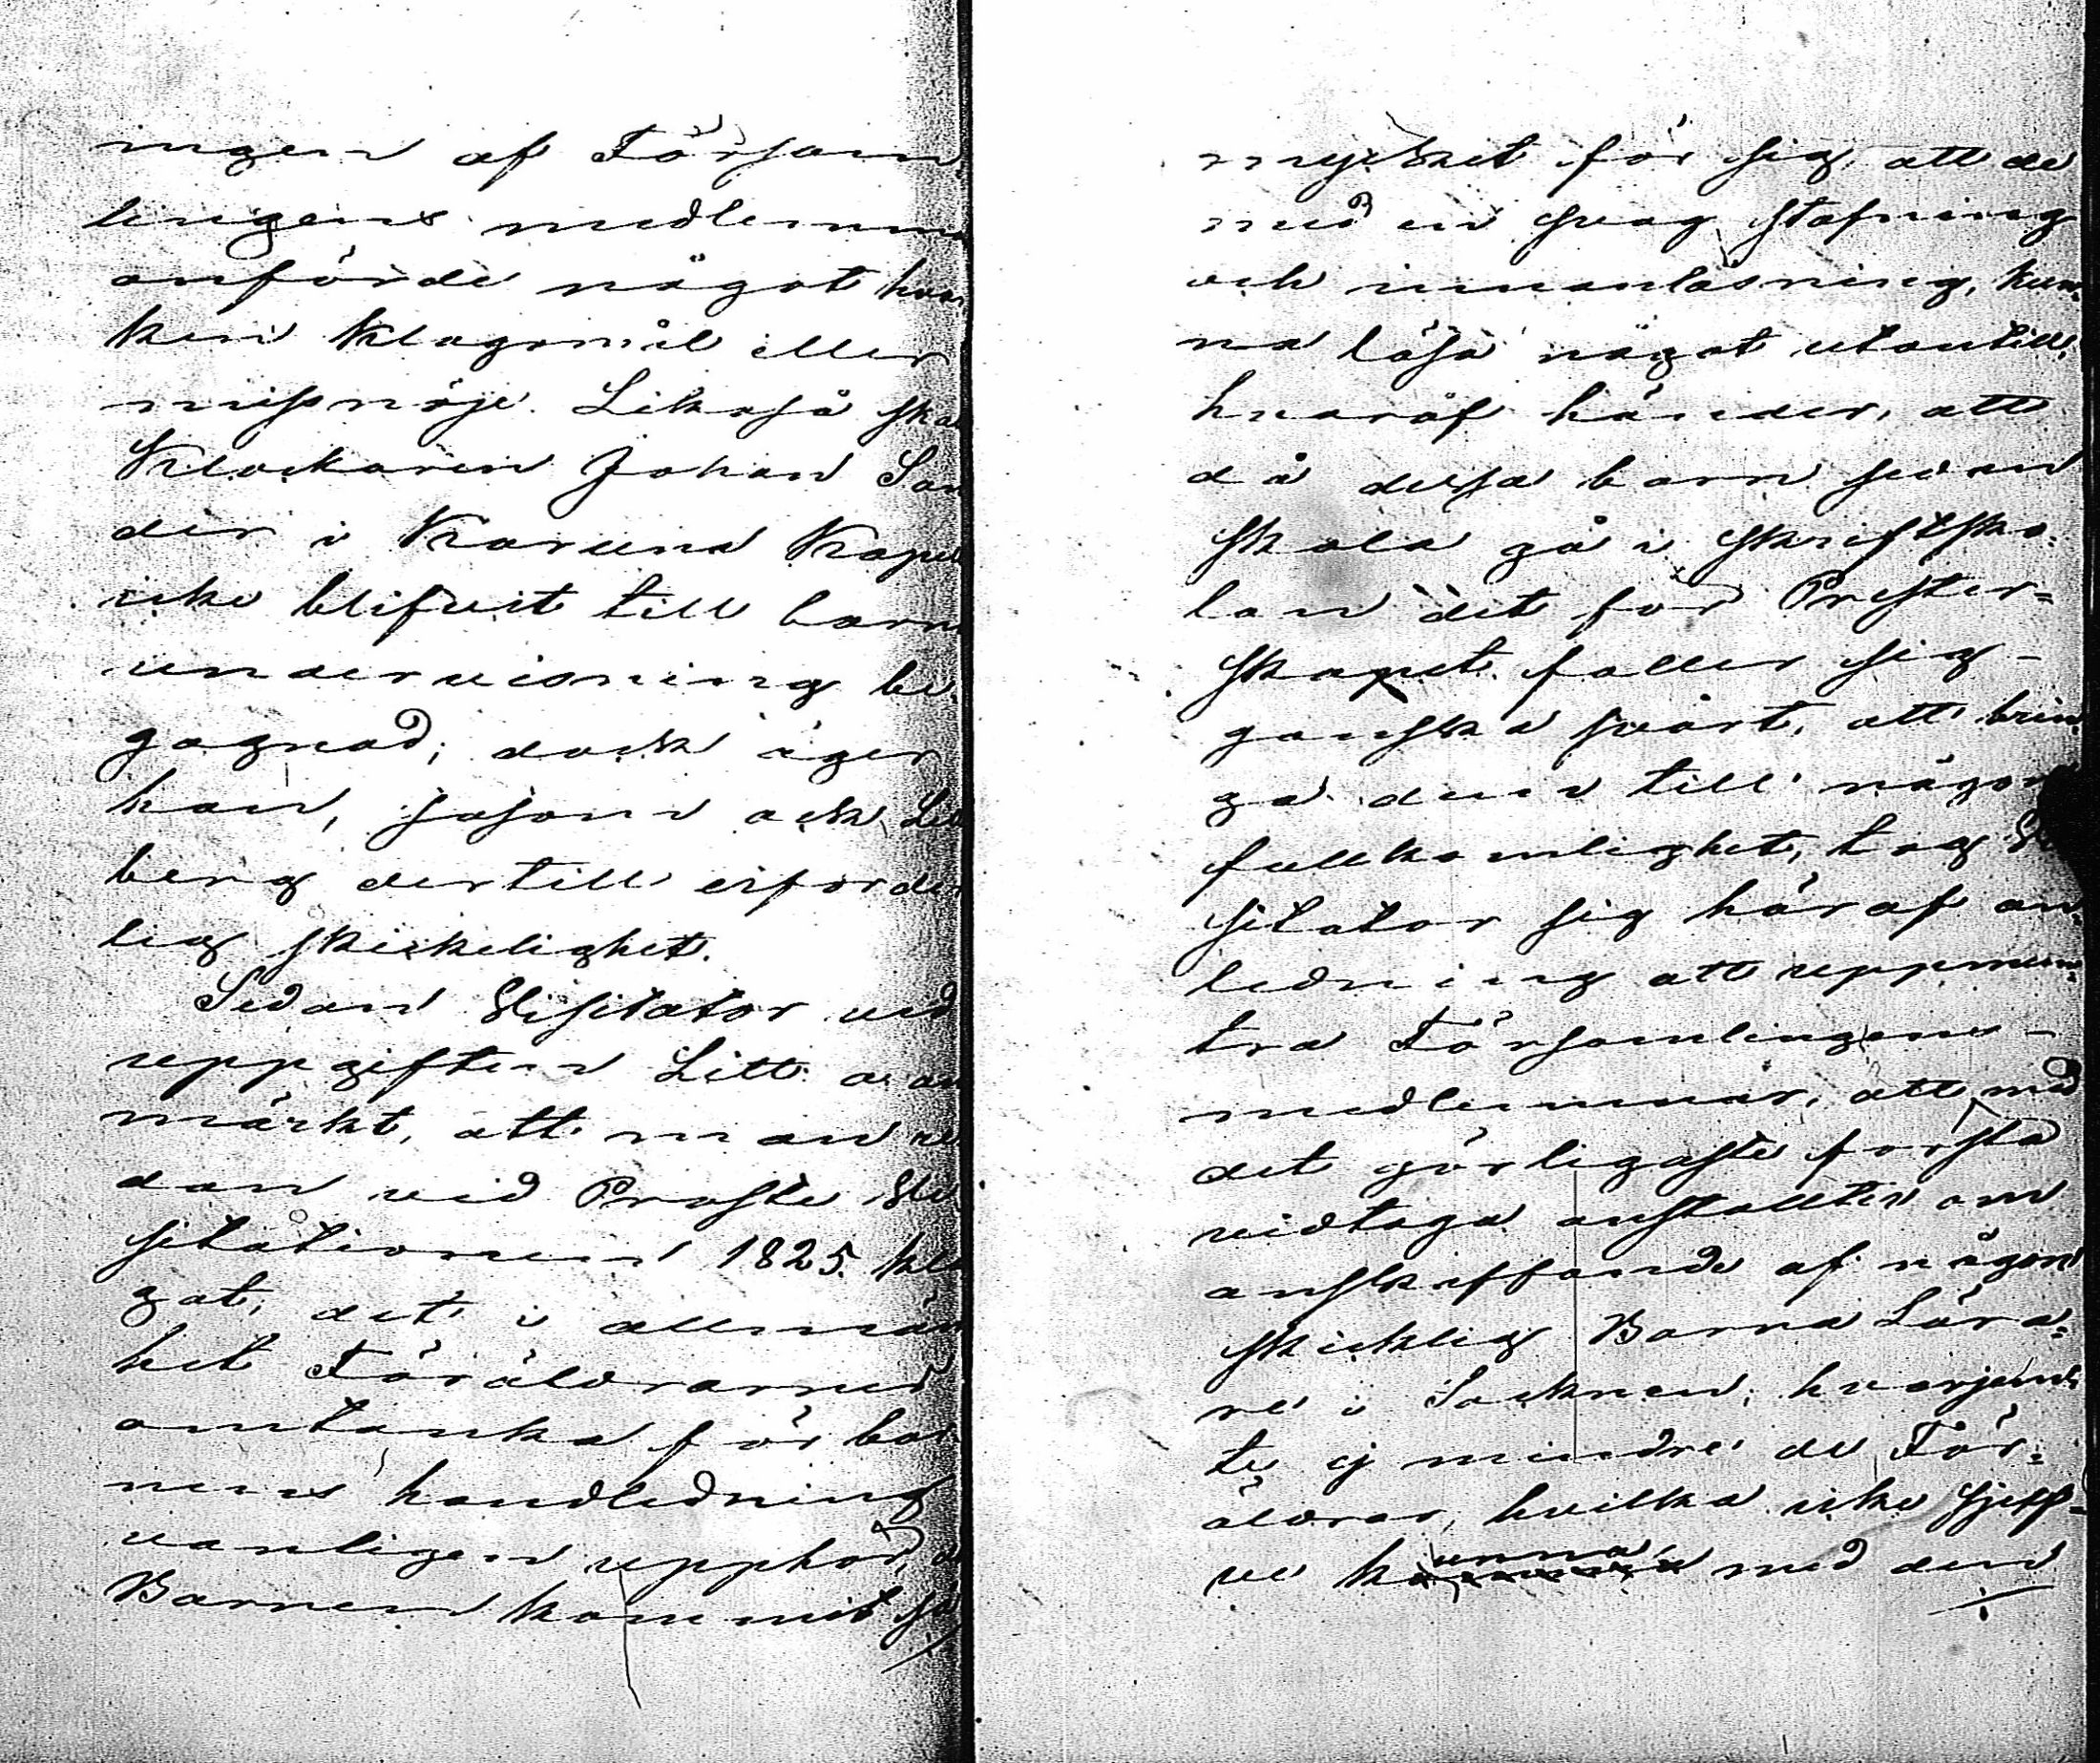 ingen af Försam
lingens medlemma
anförde något hvar
ken klagomål eller
missnöje. Likaså ska
Klockaren Johan San
der i Karuna Kapel
icke blifvit till barn
undervisning be
gagnad; dock äger
han, såsom ock Le
berg dertill erforder
lig skickelighet.
Sedan Visitator vid
uppgiften Litt. a. an
märkt, att man re
dan vid Proste Vi
sitationen 1825. kla
gat, det i allmän
het Föräldrarnes
omtanka för bar
nens handledning
vanligen upphör, d
Barnen kommit så
mycket för sig, att de
med en svag stafning
och innanläsning, kun=
na läsa något utantill,
hvaraf händer, att
då dessa barn sedan
skola gå i skriftsko=
lan det för Prester=
skapet faller sig
ganska svårt, att brin
ga dem till någon
fullkomlighet, tog Vi
sitator sig häraf an=
ledning att uppmun=
tra Församlingens
medlemmar, att med
det görligaste första
vidtaga anstalter om
anskaffande af någon
skicklig Barna Lära=
re i Socknen; hvarjem=
te ej mindre de För=
äldrar, hvilka icke sjelf=
ve kunna med den